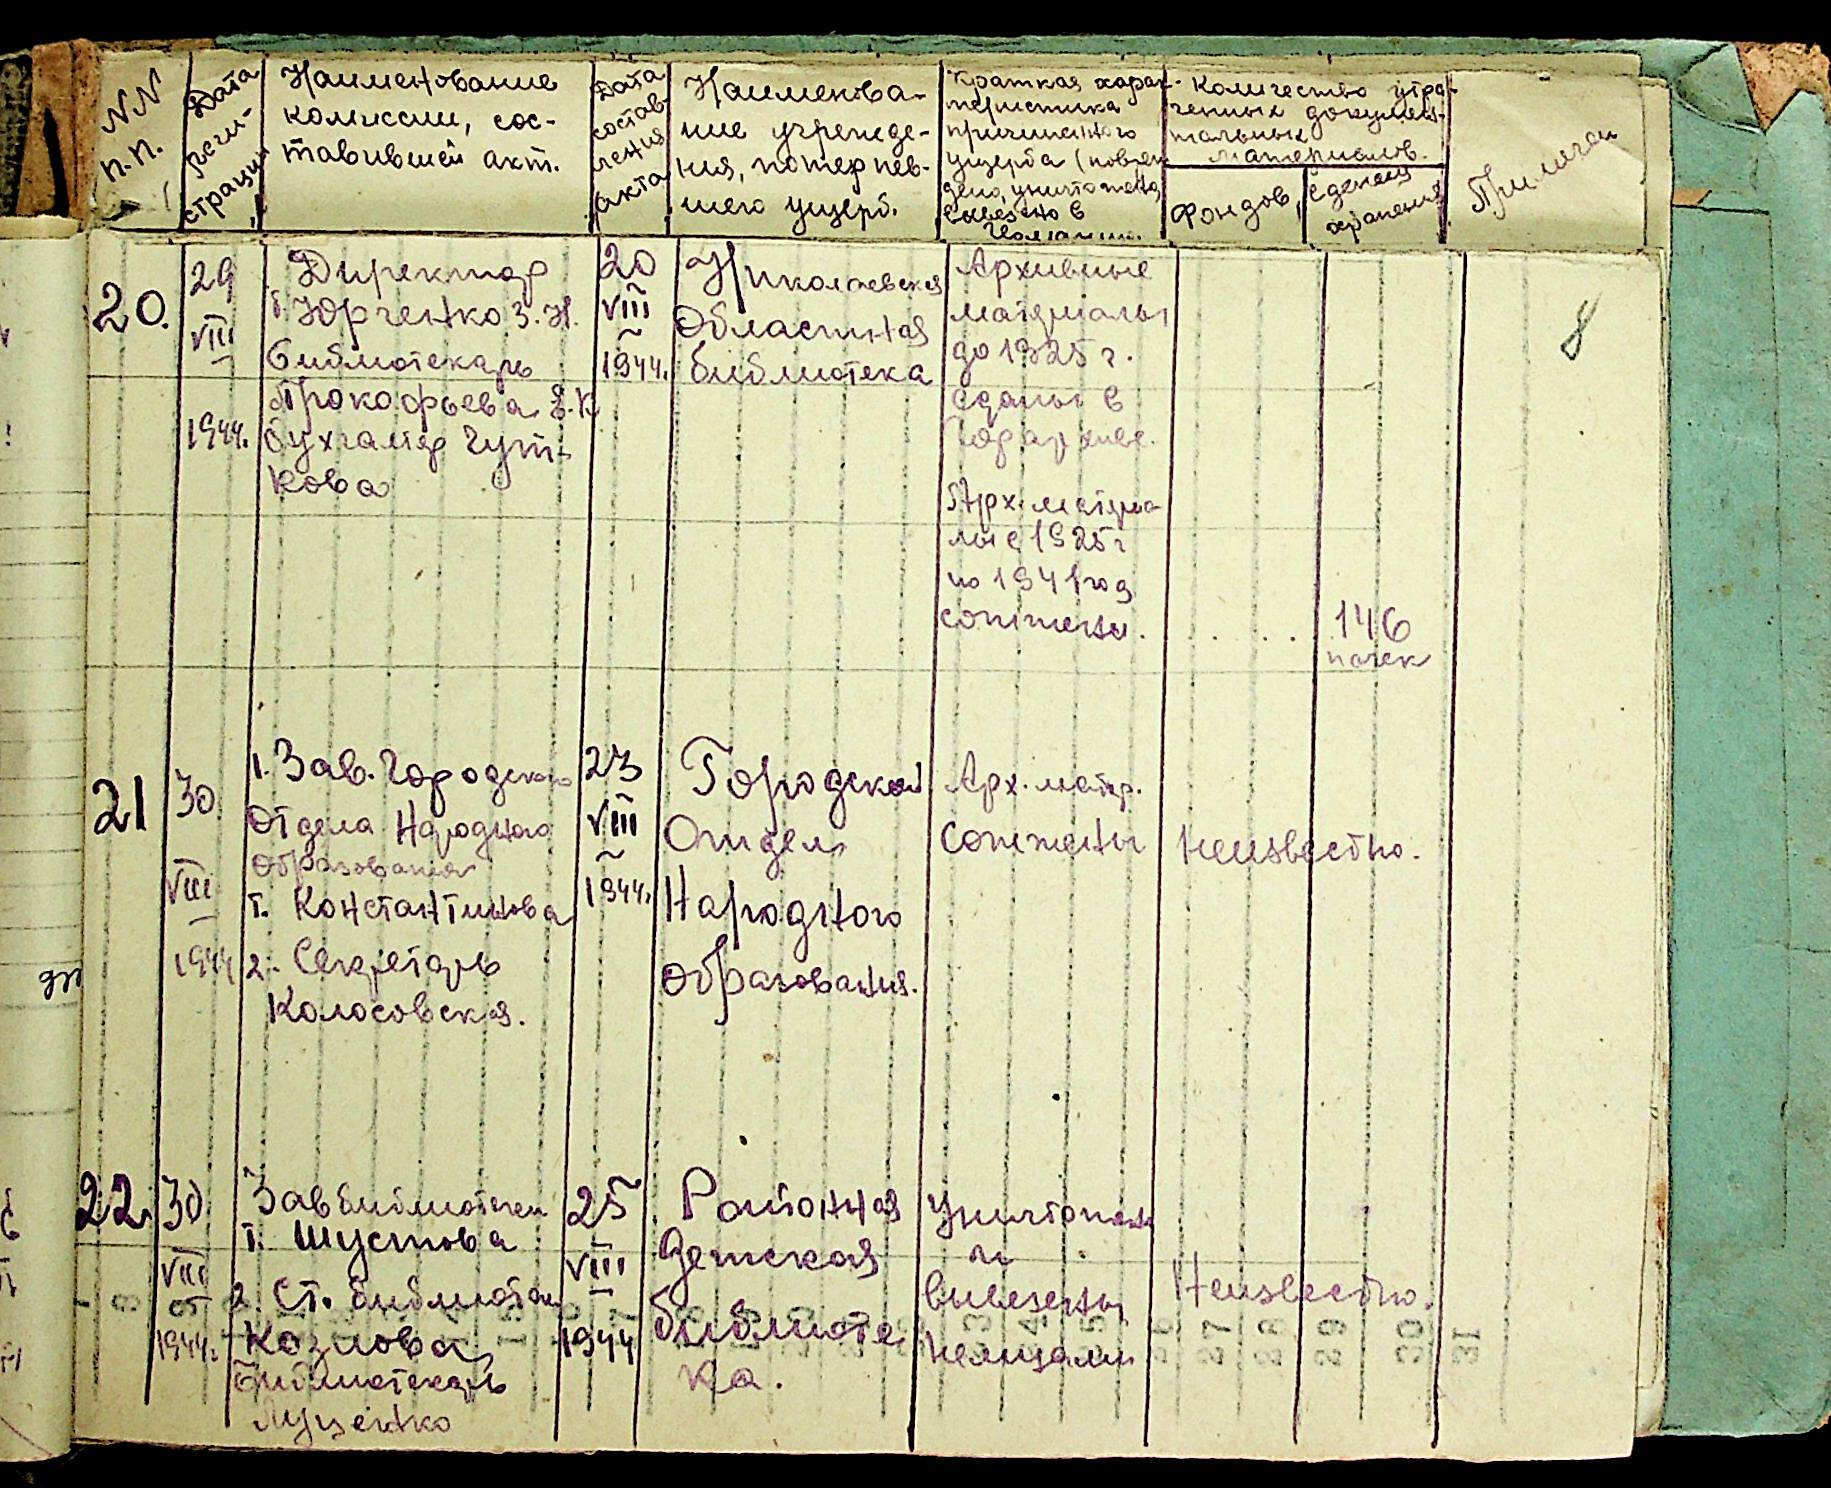 NN п.п.
Дата реги-
страции
Наименование
комиссии, сос-
тавившей акт.
Дата
состав-
ления
акта
Наименова-
ние учрежде-
ния, потерпев-
шего ущерб.
Краткая харак-
теристика
причиненного
ущерба
вывезено в
Количество утра-
ченных докумен-
тальных
материалов.
Фондов,
единиц
хранения
Примечан
8
20.
29
VIII
1944.
Директор
т. Юрченко З. Н.
библиотекарь
Прокофьева Е. К
бухгалтер Гут-
кова
20
VIII
1944.
Николаевская
Областная
библиотека
Архивные
материалы
до 1925 г.
сданы в
Горархив.
Арх. материа
лы с 1925 г
по 1941 год
сожжены.
. . . . .
146
пачек
21
30
VIII
1944
1. Зав. Городского
Отдела Народного
Образования
т. Константинова
2. Секретарь
Колосовская.
23
VIII
1944.
Городской
Отдел
Народного
Образования.
Арх. матер.
сожжены
Неизвестно.
22.
30
VIII
1944г.
Зав библиотеки
т. Шустова
2. Ст. библиотек
Козлова
Библиотекарь
Луценко
25
VIII
1944
Районная
детская
библиоте
ка.
Уничтожены
и
вывезены
немцами
Неизвестно.